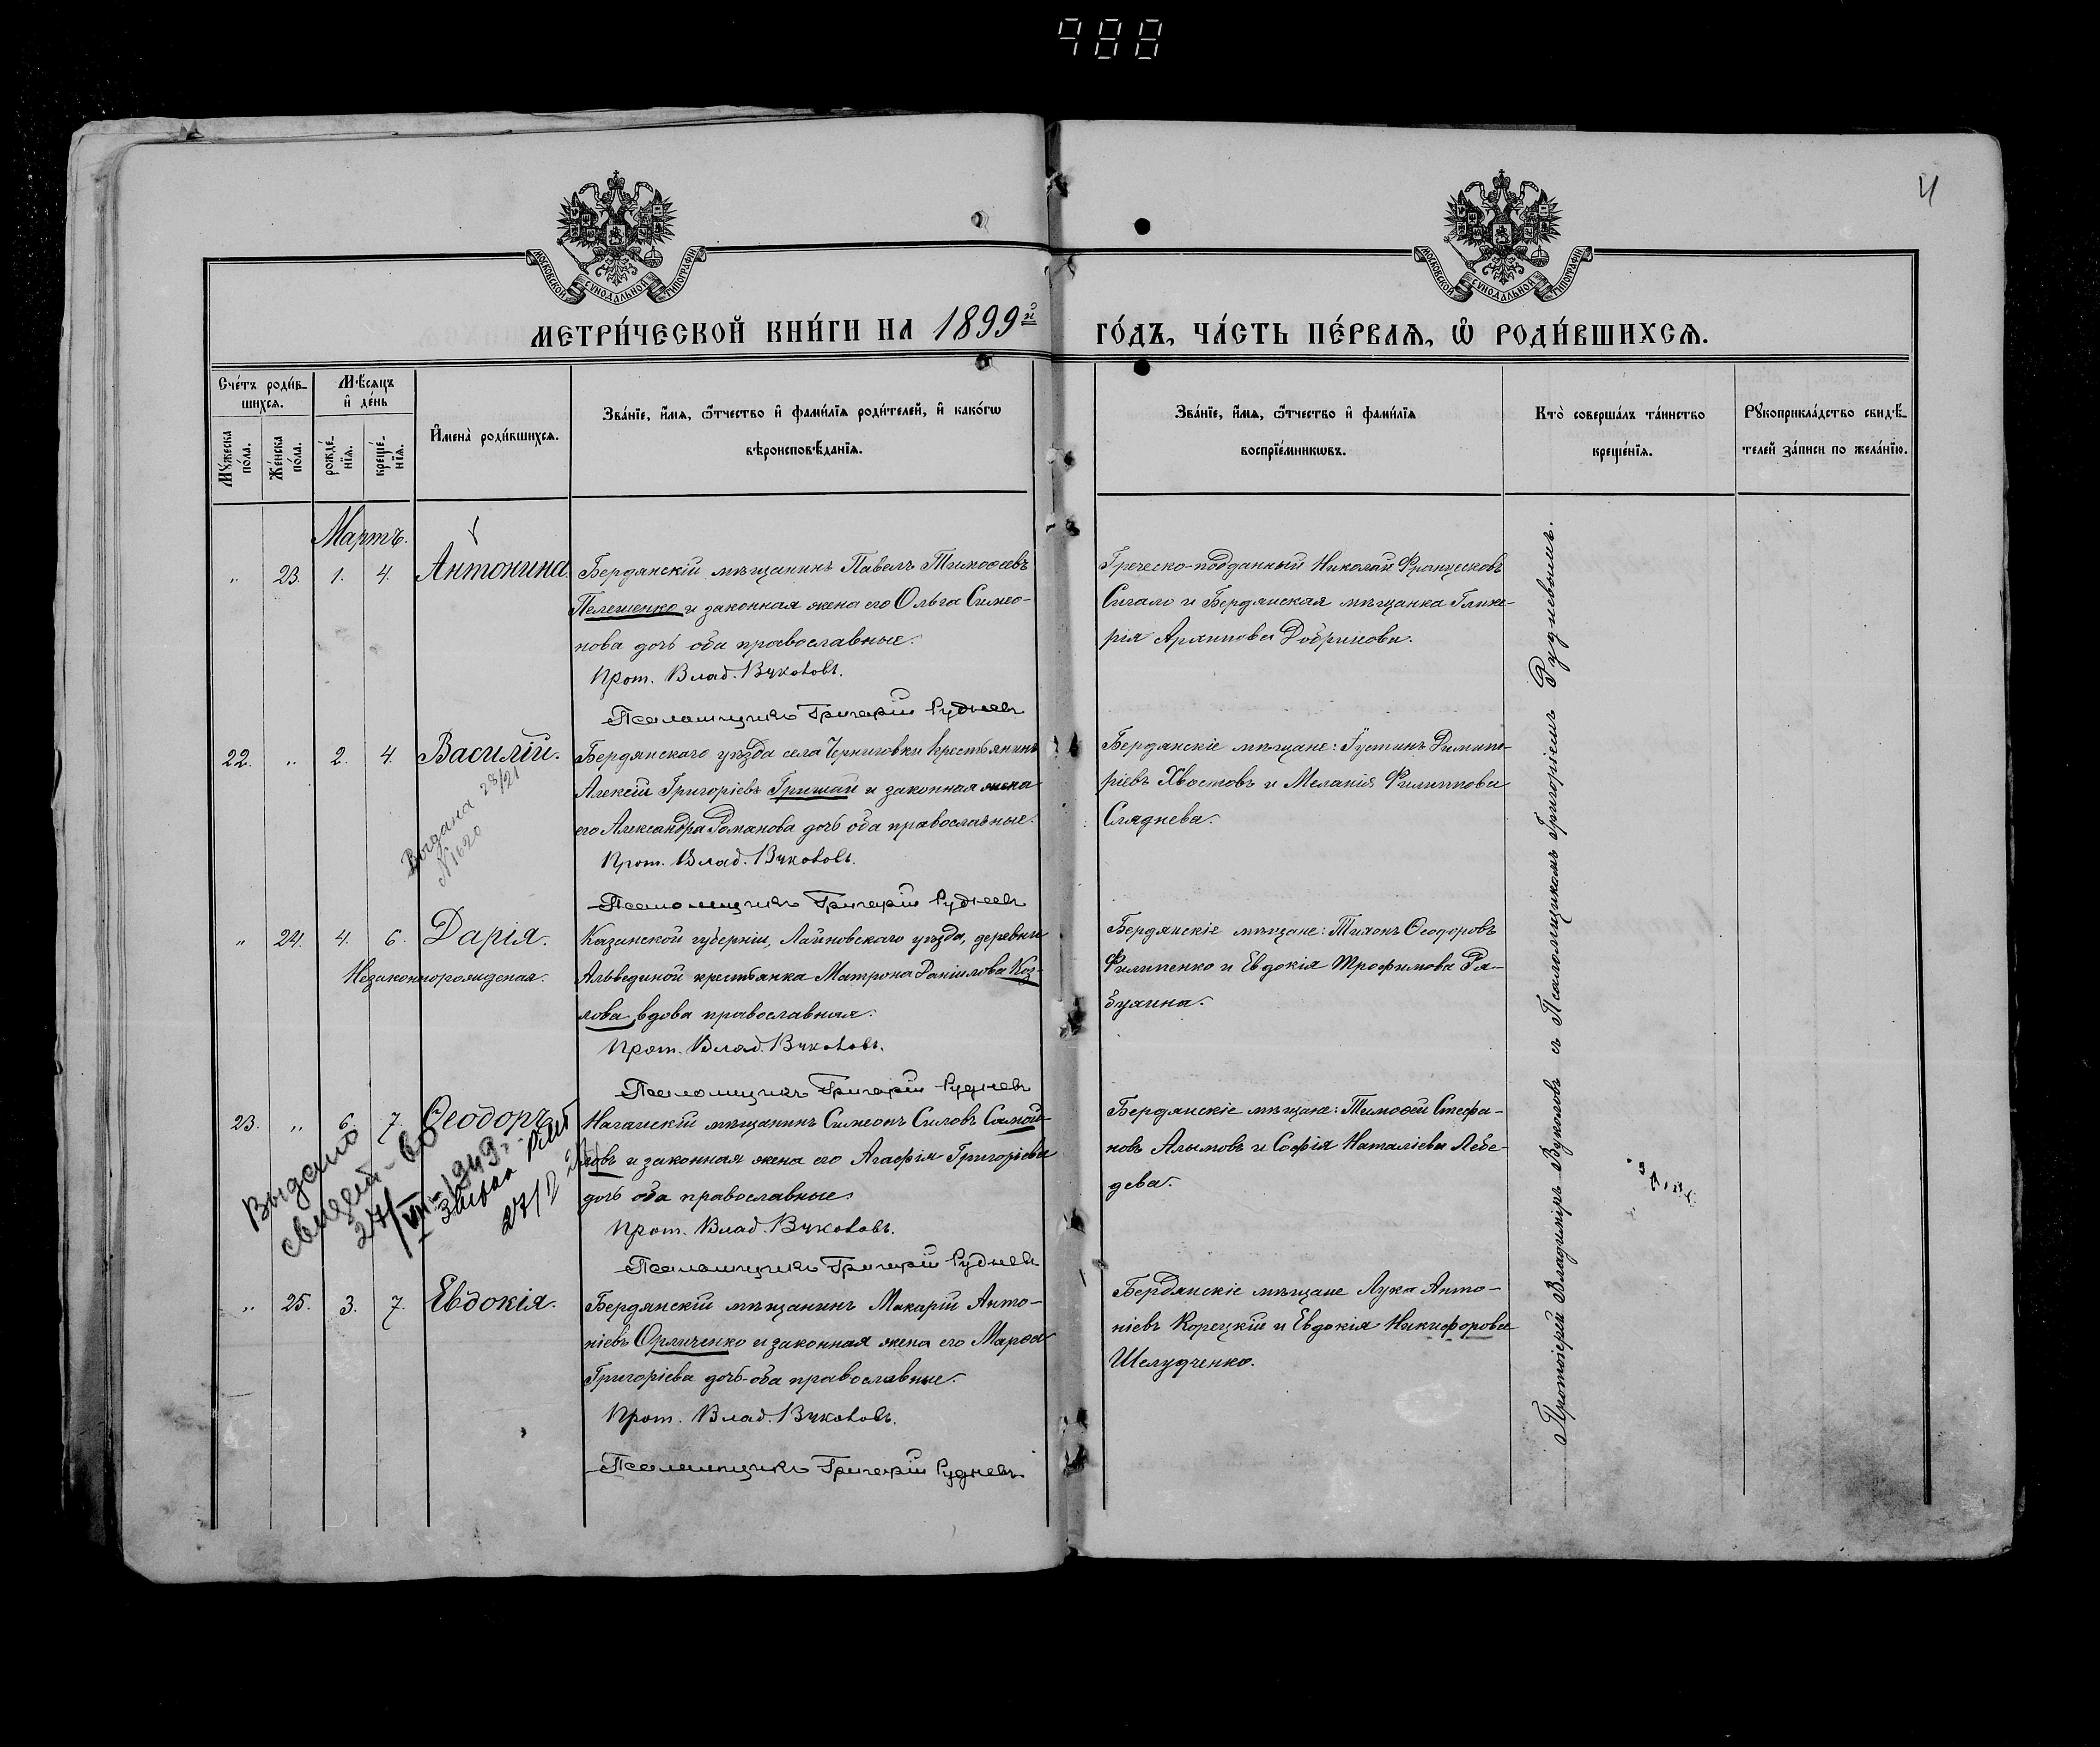 988
4
МОСКОВСКОЙ СѴНОДАЛЬНОЙ ТИПОГРАФІИ
МОСКОВСКОЙ СѴНОДАЛЬНОЙ ТИПОГРАФІИ
МЕТРИ́ЧЕСКОЙ КНИ́ГИ НА 1899й ГО́ДЪ, ЧА́СТЬ ПЕ́РВАЯ, Ѿ РОДИ́ВШИХСѦ.
Сче́тъ роди́в-
шихся.
Мѣ́сяцъ
и҆ де́нь
Мꙋ́жеска по́ла.
Же́нска по́ла.
рожде́-
нїя.
креще́-
нїя.
И҆мена̀ роди́вшихся.
Зва́нїе, и҆́мя, ѻ҆́тчество и҆ фами́лїя роди́телей, и҆ како́гѡ
вѣроисповѣ́данїя.
Зва́нїе, и҆́мя, ѻ҆́тчество и҆ фами́лїя
воспрїе́мникѡвъ.
Кто̀ соверша́лъ та́инство
креще́нїя.
Рꙋкоприкла́дство свидѣ́-
телей за́писи по жела́нїю.
Мартъ.
„ 23. 1. 4. Антонина.
Бердянскій мѣщанинъ Павелъ Тимоѳеевъ
Пелешенко и законная жена его Ольга Симео-
нова дочь оба православные.
Прот. Влад. Вуколовъ.
Псаломщикъ Григорій Рудневъ
Греческо-подданный Николай Францесковъ
Сигало и Бердянская мѣщанка Глике-
рія Архипова Добринова.
22. „ 2. 4. Василій.
Выдана 28/21
N 1620
Бердянскаго уѣзда села Черниговки крестьянинъ
Алексѣй Григоріевъ Гришай и законная жена
его Александра Романова дочь оба православные.
Прот. Влад. Вуколовъ.
Псаломщикъ Григорій Рудневъ
Бердянскіе мѣщане: Іустинъ Димит-
ріевъ Хвостовъ и Меланія Филиппова
Сляднева.
„ 24. 4. 6. Дарія.
Незаконнорожденая.
Казанской губерніи, Лаишовскаго уѣзда, деревни
крестьянка Матрона Даніилова Коз-
лова, вдова православная.
Прот. Влад. Вуколовъ.
Псаломщикъ Григорій Рудневъ
Бердянскіе мѣщане: Тихонъ Ѳеодоровъ
Филипенко и Евдокія Трофимова Ря-
бухина.
23. „ 6. 7. Ѳеодоръ.
Выдано
свидет-во
27/VIII-1949 г.
Ногайскій мѣщанинъ Симеонъ Силовъ Самой-
ловъ и законная жена его Агафія Григоріева
дочь оба православные.
Прот. Влад. Вуколовъ.
Псаломщикъ Григорій Рудневъ
Бердянскіе мѣщане: Тимоѳей Стефа-
новъ Алымовъ и Софія Наталіева Лебе-
дева.
„ 25. 3. 7. Евдокія.
Бердянскій мѣщанинъ Макарій Анто-
ніевъ Орличенко и законная жена его Марѳа
Григоріева дочь-оба православные.
Прот. Влад. Вуколовъ.
Псаломщикъ Григорій Рудневъ
Бердянскіе мѣщане Лука Анто-
ніевъ Корецкій и Евдокія Никифорова
Шелудченко.
Протоіерей Владиміръ Вуколовъ съ Псаломщикомъ Григоріемъ Рудневымъ.